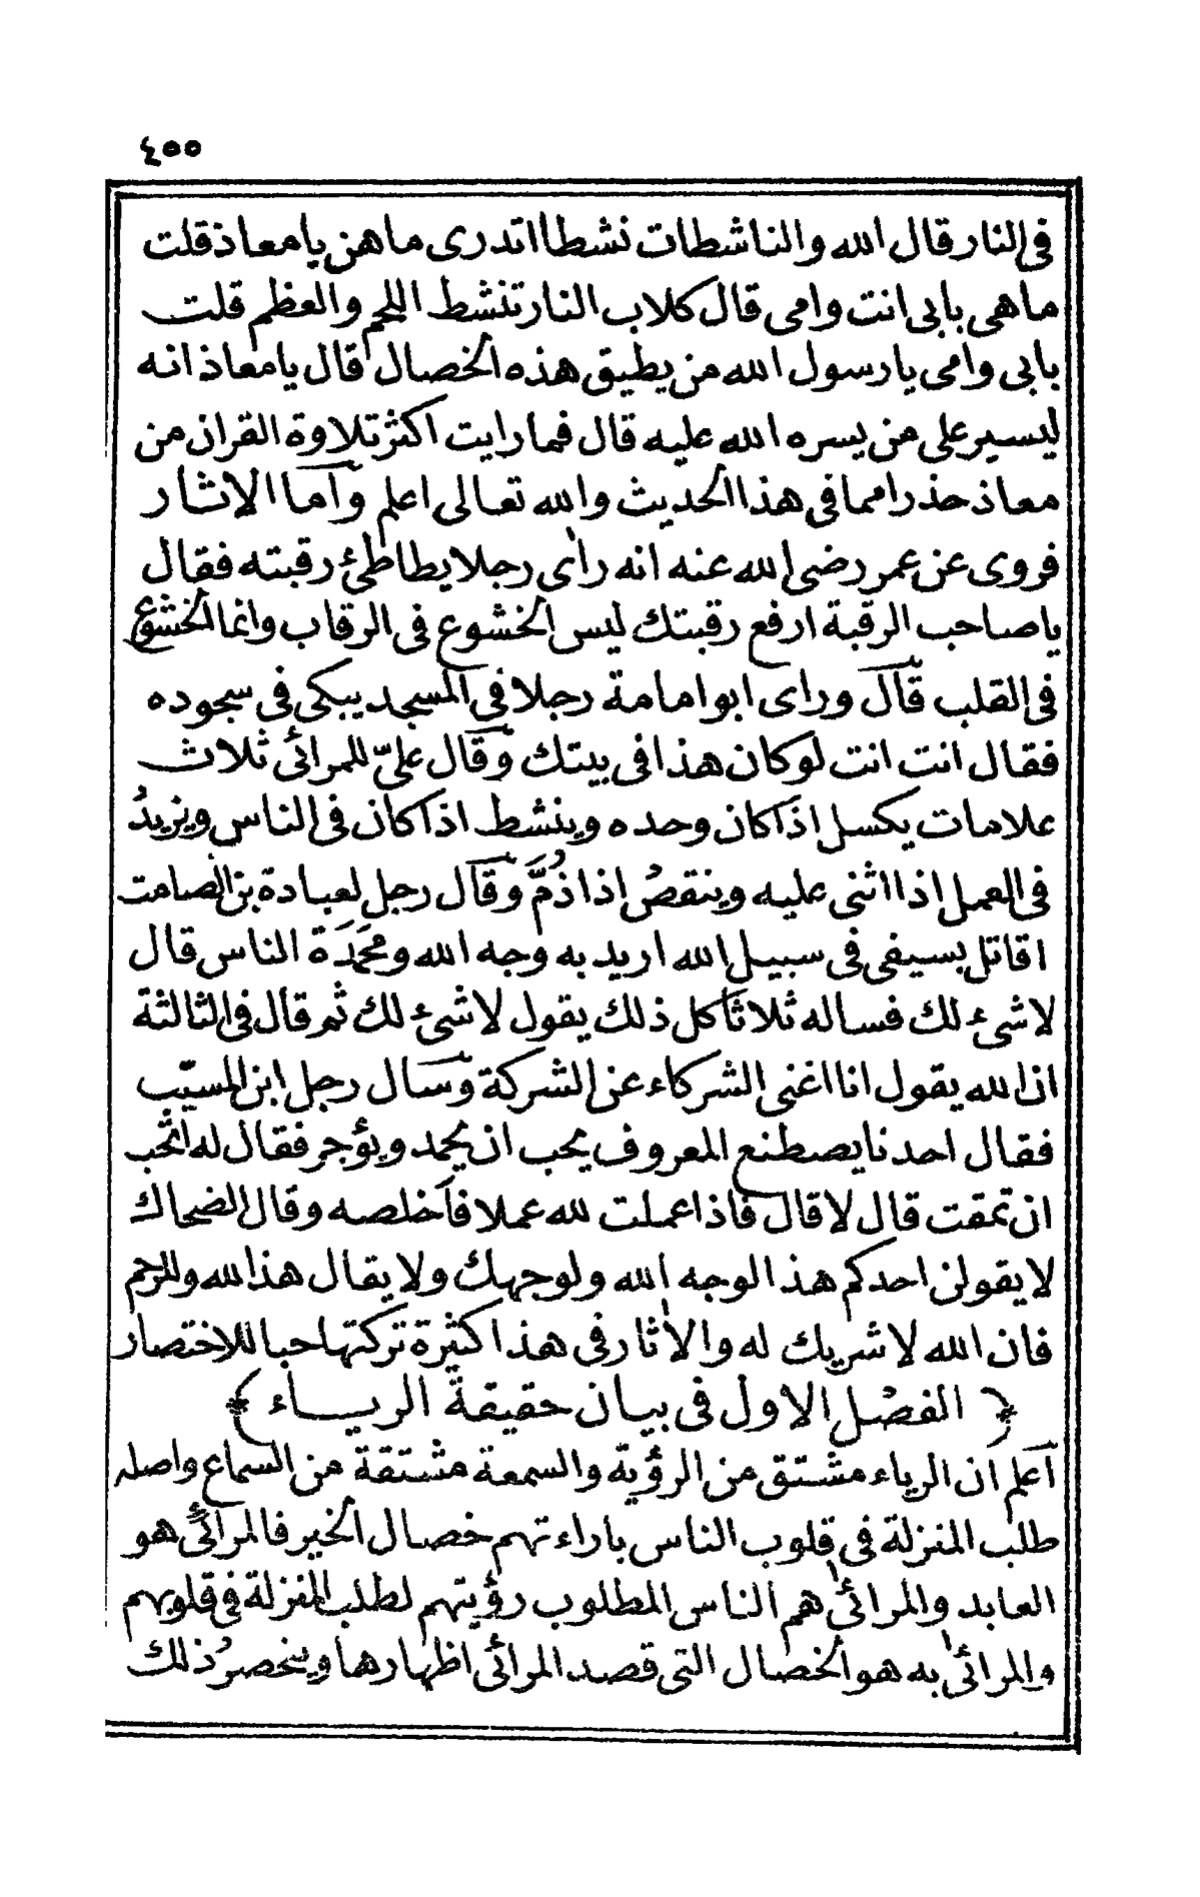 ٤٥٥
فى النار قال الله والناشطات نشطا اتدرى ما هن يا معاذ قلت
ما هى بابى انت وامى قال كلاب النار تنشط اللحم والعظم قلت
بابى وامى يا رسول الله من يطيق هذه الخصال قال يا معاذ انه
ليسير على من يسره الله عليه قال فما رايت اكثر تلاوة القران من
معاذ حذرا مما فى هذا الحديث والله تعالى اعلم وآما الاثار
فروى عن عمر رضى الله عنه انه رأى رجلا يطاطئ رقبته فقال
يا صاحب الرقبة ارفع رقبتك ليس الخشوع فى الرقاب وانما الخشوع
فى القلب قال وراى ابو امامة رجلا في المسجد يبكى فى سجوده
فقال انت انت لو كان هذا فى بيتك وقال علىّ للمرائى ثلاث
علامات يكسل اذا كان وحده وينشط اذا كان فى الناس ويزيدُ
فى العمل اذا اثنى عليه وينقصُ اذا ذُمَّ وقال رجل لعبادة بن الصامت
اقاتل بسيفى فى سبيل الله اريد به وجه الله ومحمَدَة الناس قال
لا شئ لك فساله ثلاثا كل ذلك يقول لا شئ لك ثم قال فى الثالثة
ان الله يقول انا اغنى الشركاء عن الشركة وسال رجل ابن المسيّب
فقال احدنا يصطنع المعروف يحب ان يحمد ويؤجر فقال له اتحب
ان تمقت قال لا قال فاذا عملت لله عملا فأخلصه وقال الضحاك
لا يقولن احدكم هذا لوجه الله ولوجهك ولا يقال هذا لله وللرحم
فان الله لا شريك له والاثار فى هذا كثيرة تركتها حبا للاختصار
﴿ الفصل الاول فى بيان حقيقة الرياء ﴾
آعلم ان الرياء مشتق من الرؤية والسمعة مشتقة من السماع واصله
طلب المنزلة فى قلوب الناس باراءتهم خصال الخير فالمرائى هو
العابد والمرائى هم الناس المطلوب رؤيتهم لطلب المنزلة فى قلوبهم
والمرائى به هو الخصال التى قصد المرائى اظهارها وينحصرُ ذلك